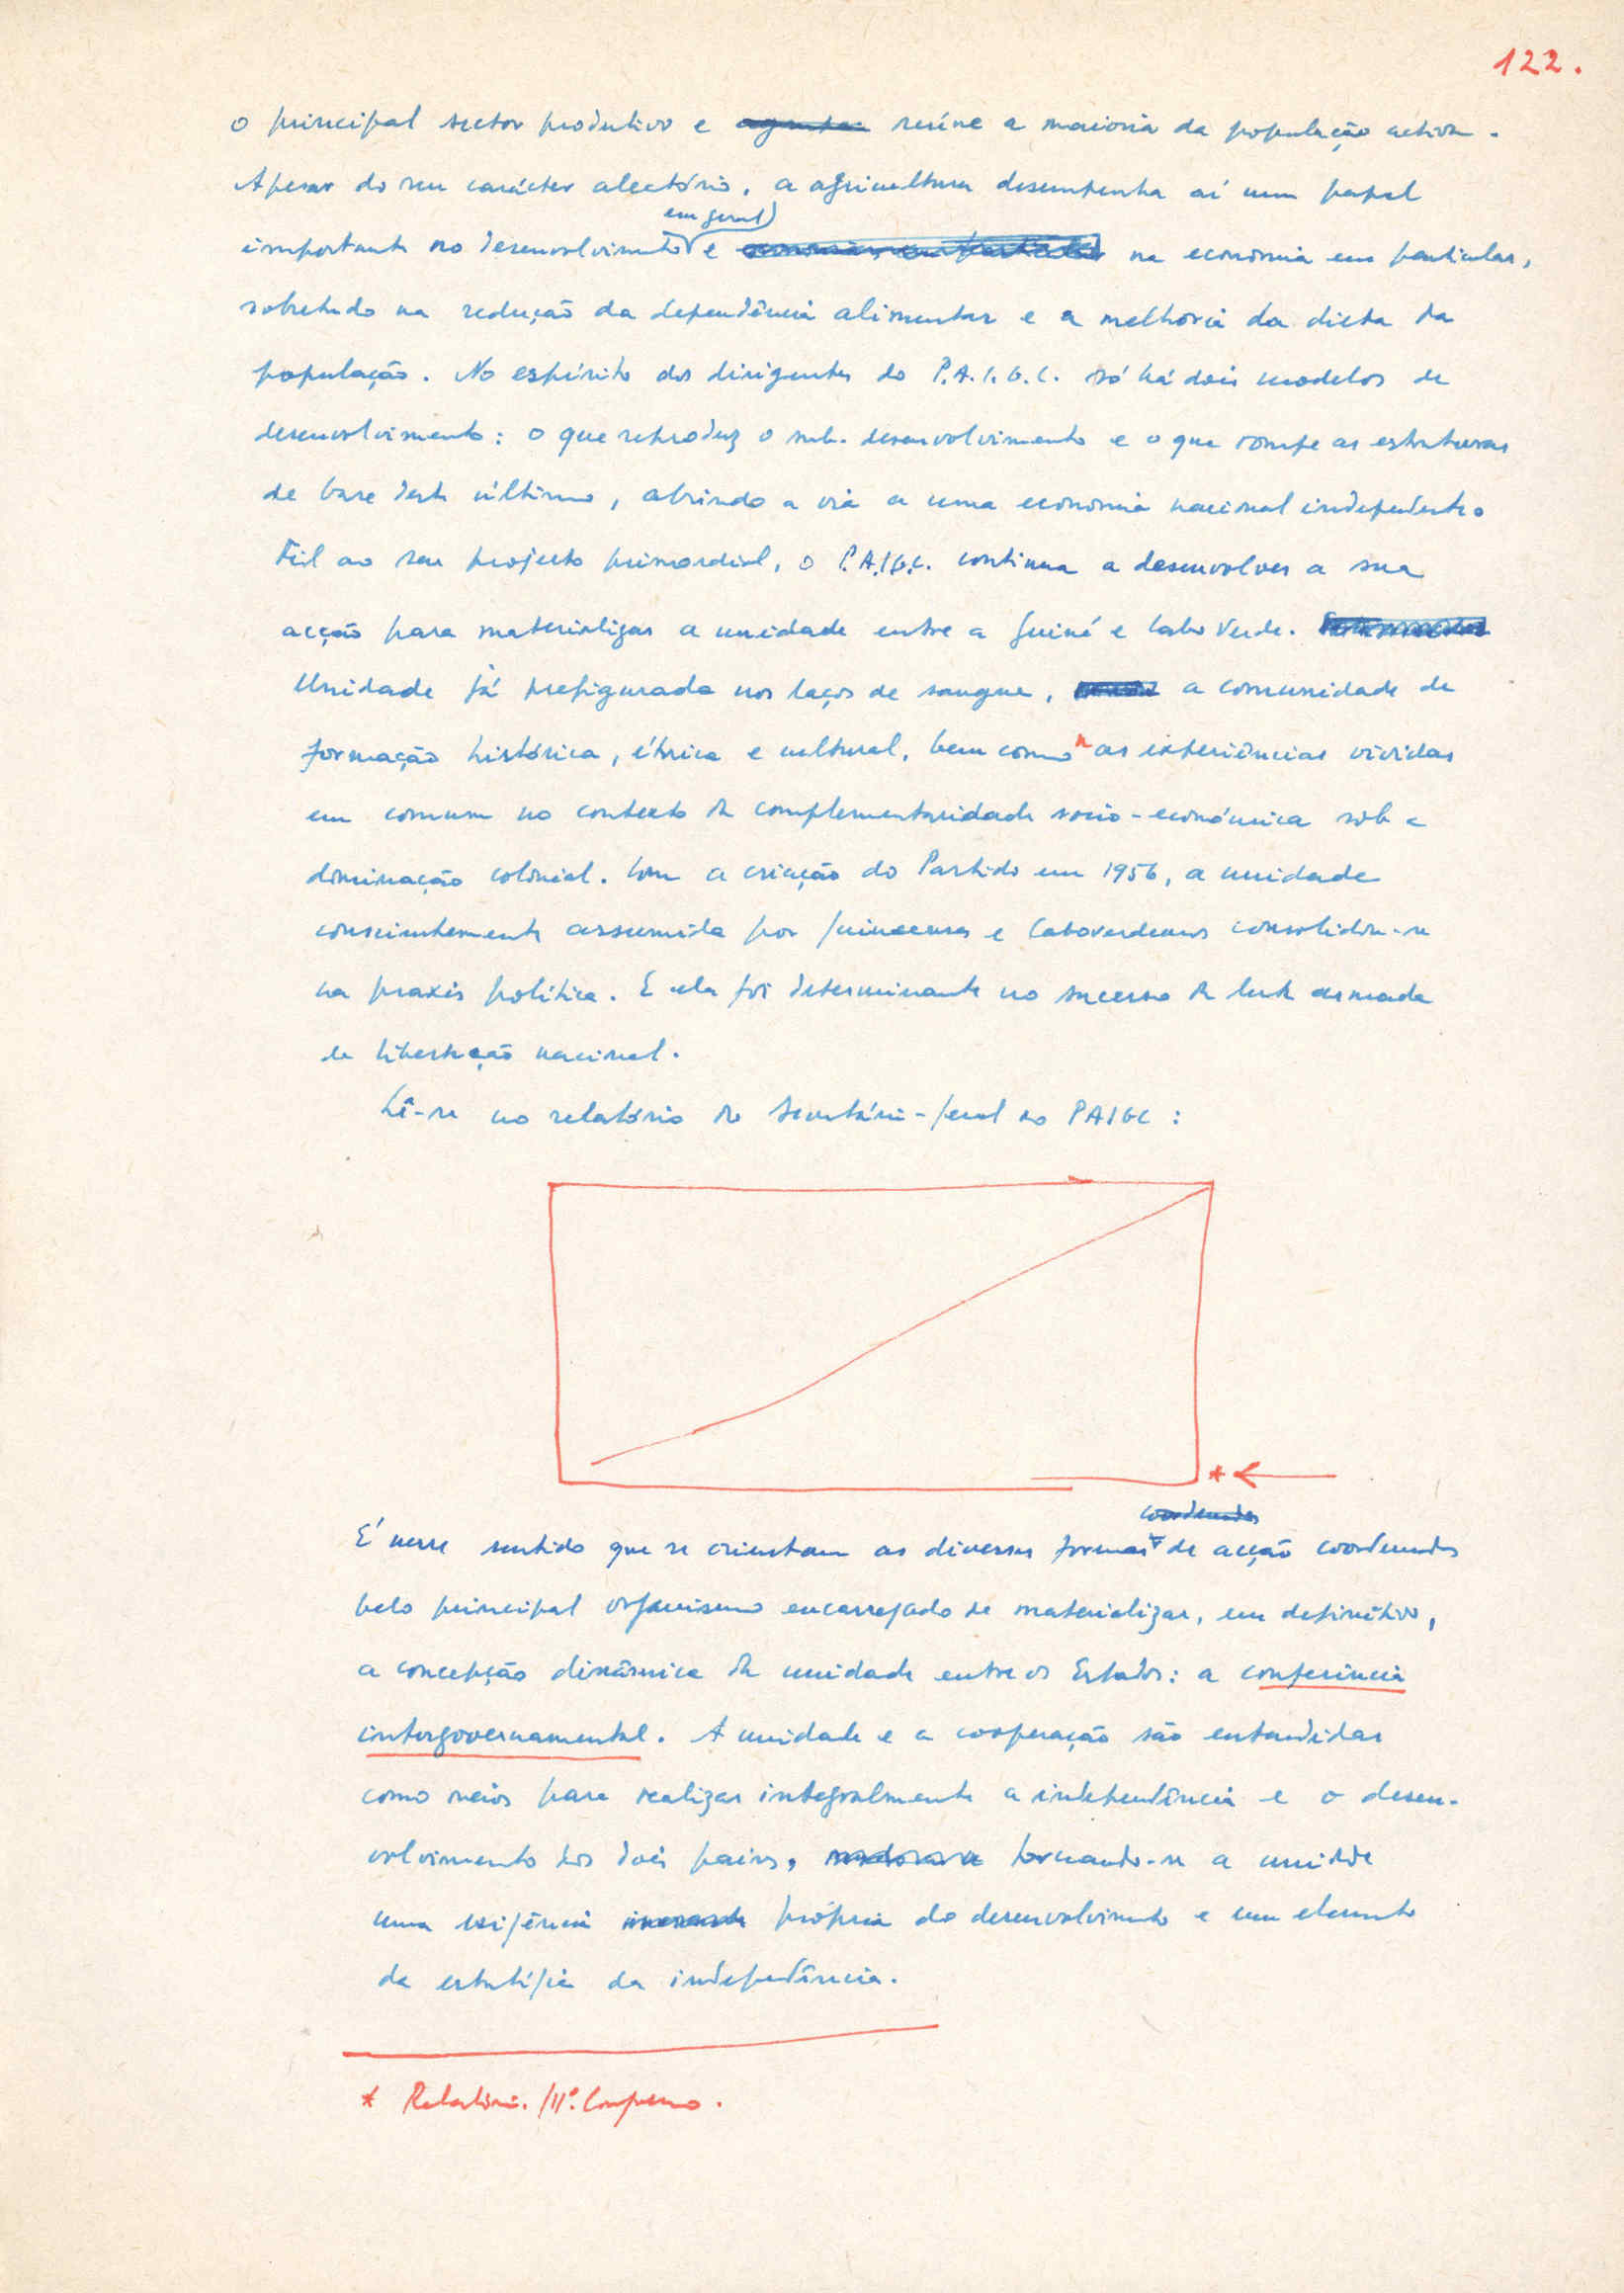 122.
o principal sector produtivo e reúne a maioria da população activa.
Apesar do seu carácter aleatório, a agricultura desempenha aí um papel
em geral
importante no desenvolvimento e na economia em particular,
sobretudo na redução da dependência alimentar e a melhoria da dieta da
população. No espírito dos dirigentes do P.A.I.G.C. só há dois modelos de
desenvolvimento: o que reproduz o sub-desenvolvimento e o que rompe as estruturas
de base deste último, abrindo a via a uma economia nacional independente.
Fiel ao seu projecto primordial, o P.A.I.G.C. continua a desenvolver a sua
acção para materializar a unidade entre a Guiné e Cabo Verde.
Unidade já prefigurada nos laços de sangue, a comunidade de
formação histórica, étnica e cultural, bem como as experiências vividas
em comum no contexto da complementaridade socio-económica sob a
dominação colonial. Com a criação do Partido em 1956, a unidade
conscientemente assumida por guineenses e caboverdeanos consolidou-se
na praxis política. E ela foi determinante no sucesso da luta armada
de libertação nacional.
Lê-se no relatório do Secretário-geral do PAIGC:
*
coordenadas
É nesse sentido que se orientam as diversas formas de acção coordenadas
pelo principal organismo encarregado de materializar, em definitivo,
a concepção dinâmica da unidade entre os Estados: a conferência
intergovernamental. A unidade e a cooperação são entendidas
como meios para realizar integralmente a independência e o desen-
volvimento dos dois países, tornando-se a unidade
uma exigência própria do desenvolvimento e um elemento
da estratégia da independência.
* Relatório. III.º Congresso.